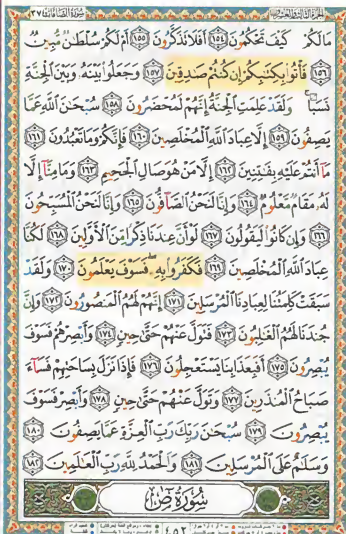 سورة الصافات ٣٧
مالكم كيف تحكمون ١٥٤ أفلا تذكرون ١٥٥ أم لكم سلطن مبين
١٥٦ فأتوا بكتبكم إن كنتم صدقين ١٥٧ وجعلوا بينه وبين الجنة
نسبا ولقد علمت الجنة إنهم لمحضرون ١٥٨ سبحن الله عما
يصفون ١٥٩ إلا عباد الله المخلصين ١٦٠ فإنكم وما تعبدون ١٦١
ما أنتم عليه بفتنين ١٦٢ إلا من هو صال الجحيم ١٦٣ وما منا إلا
له مقام معلوم ١٦٤ وإنا لنحن الصافون ١٦٥ وإنا لنحن المسبحون
١٦٦ وإن كانوا ليقولون ١٦٧ لو أن عندنا ذكرا من الأولين ١٦٨ لكنا
عباد الله المخلصين ١٦٩ فكفروا به فسوف يعلمون ١٧٠ ولقد
سبقت كلمتنا لعبادنا المرسلين ١٧١ إنهم لهم المنصورون ١٧٢ وإن
جندنا لهم الغلبون ١٧٣ فتول عنهم حتى حين ١٧٤ وأبصرهم فسوف
يبصرون ١٧٥ أفبعذابنا يستعجلون ١٧٦ فإذا نزل بساحتهم فساء
صباح المنذرين ١٧٧ وتول عنهم حتى حين ١٧٨ وأبصر فسوف
يبصرون ١٧٩ سبحن ربك رب العزة عما يصفون ١٨٠
وسلم على المرسلين ١٨١ والحمد لله رب العلمين ١٨٢
سورة ص
٤٥٢